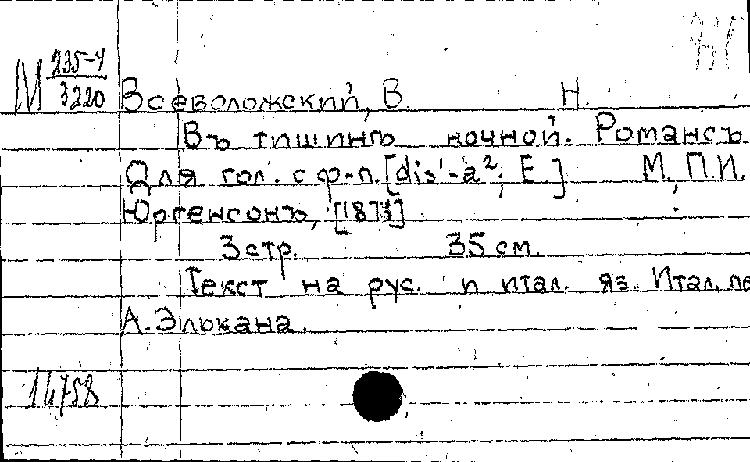 М 235-4
3220
Всеволожский, В. Н.
Въ тишинѣ ночной. Романсъ
Для гол. с ф-п. [dis'-a²; E.] М., П.И.
Юргенсонъ,
3 стр. 35 см.
Текст на рус. и итал. яз. Итал. пе
А. Элькана.
14758